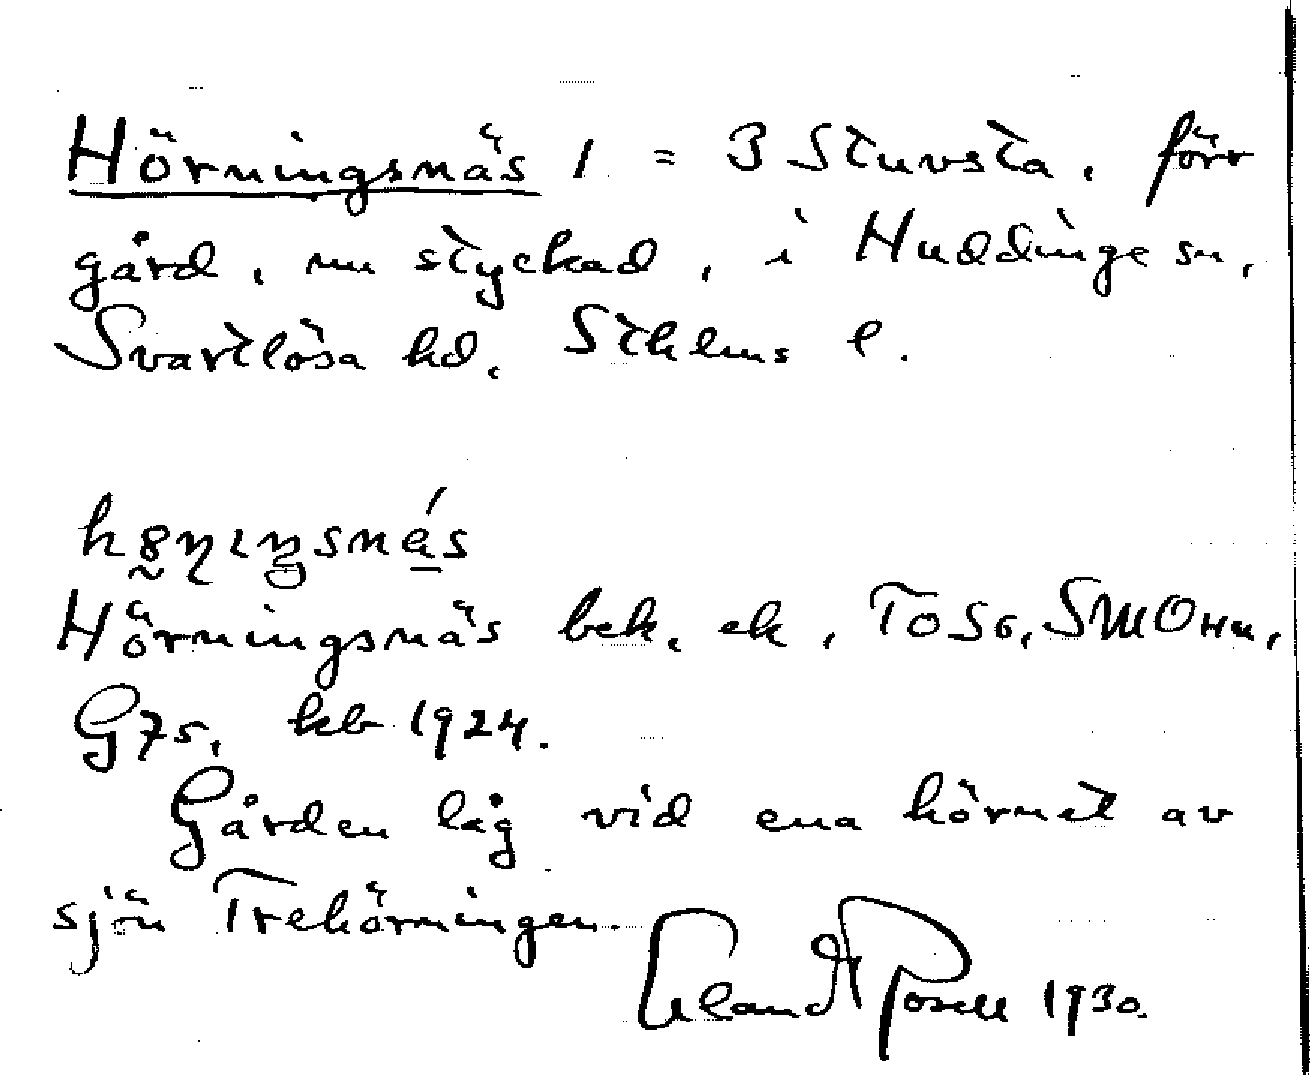 Hörningsnäs 1 = 3 Stuvsta, förr
gård, nu styckad, i Huddinge sn,
Svartlösa hd, Sthlms l.
Hörningsnäs bek. ek, To5G, SMOHu,
G75, kb 1924.
Gården låg vid ena hörnet av
sjön Trehörningen.
Erland Rosell 1930.